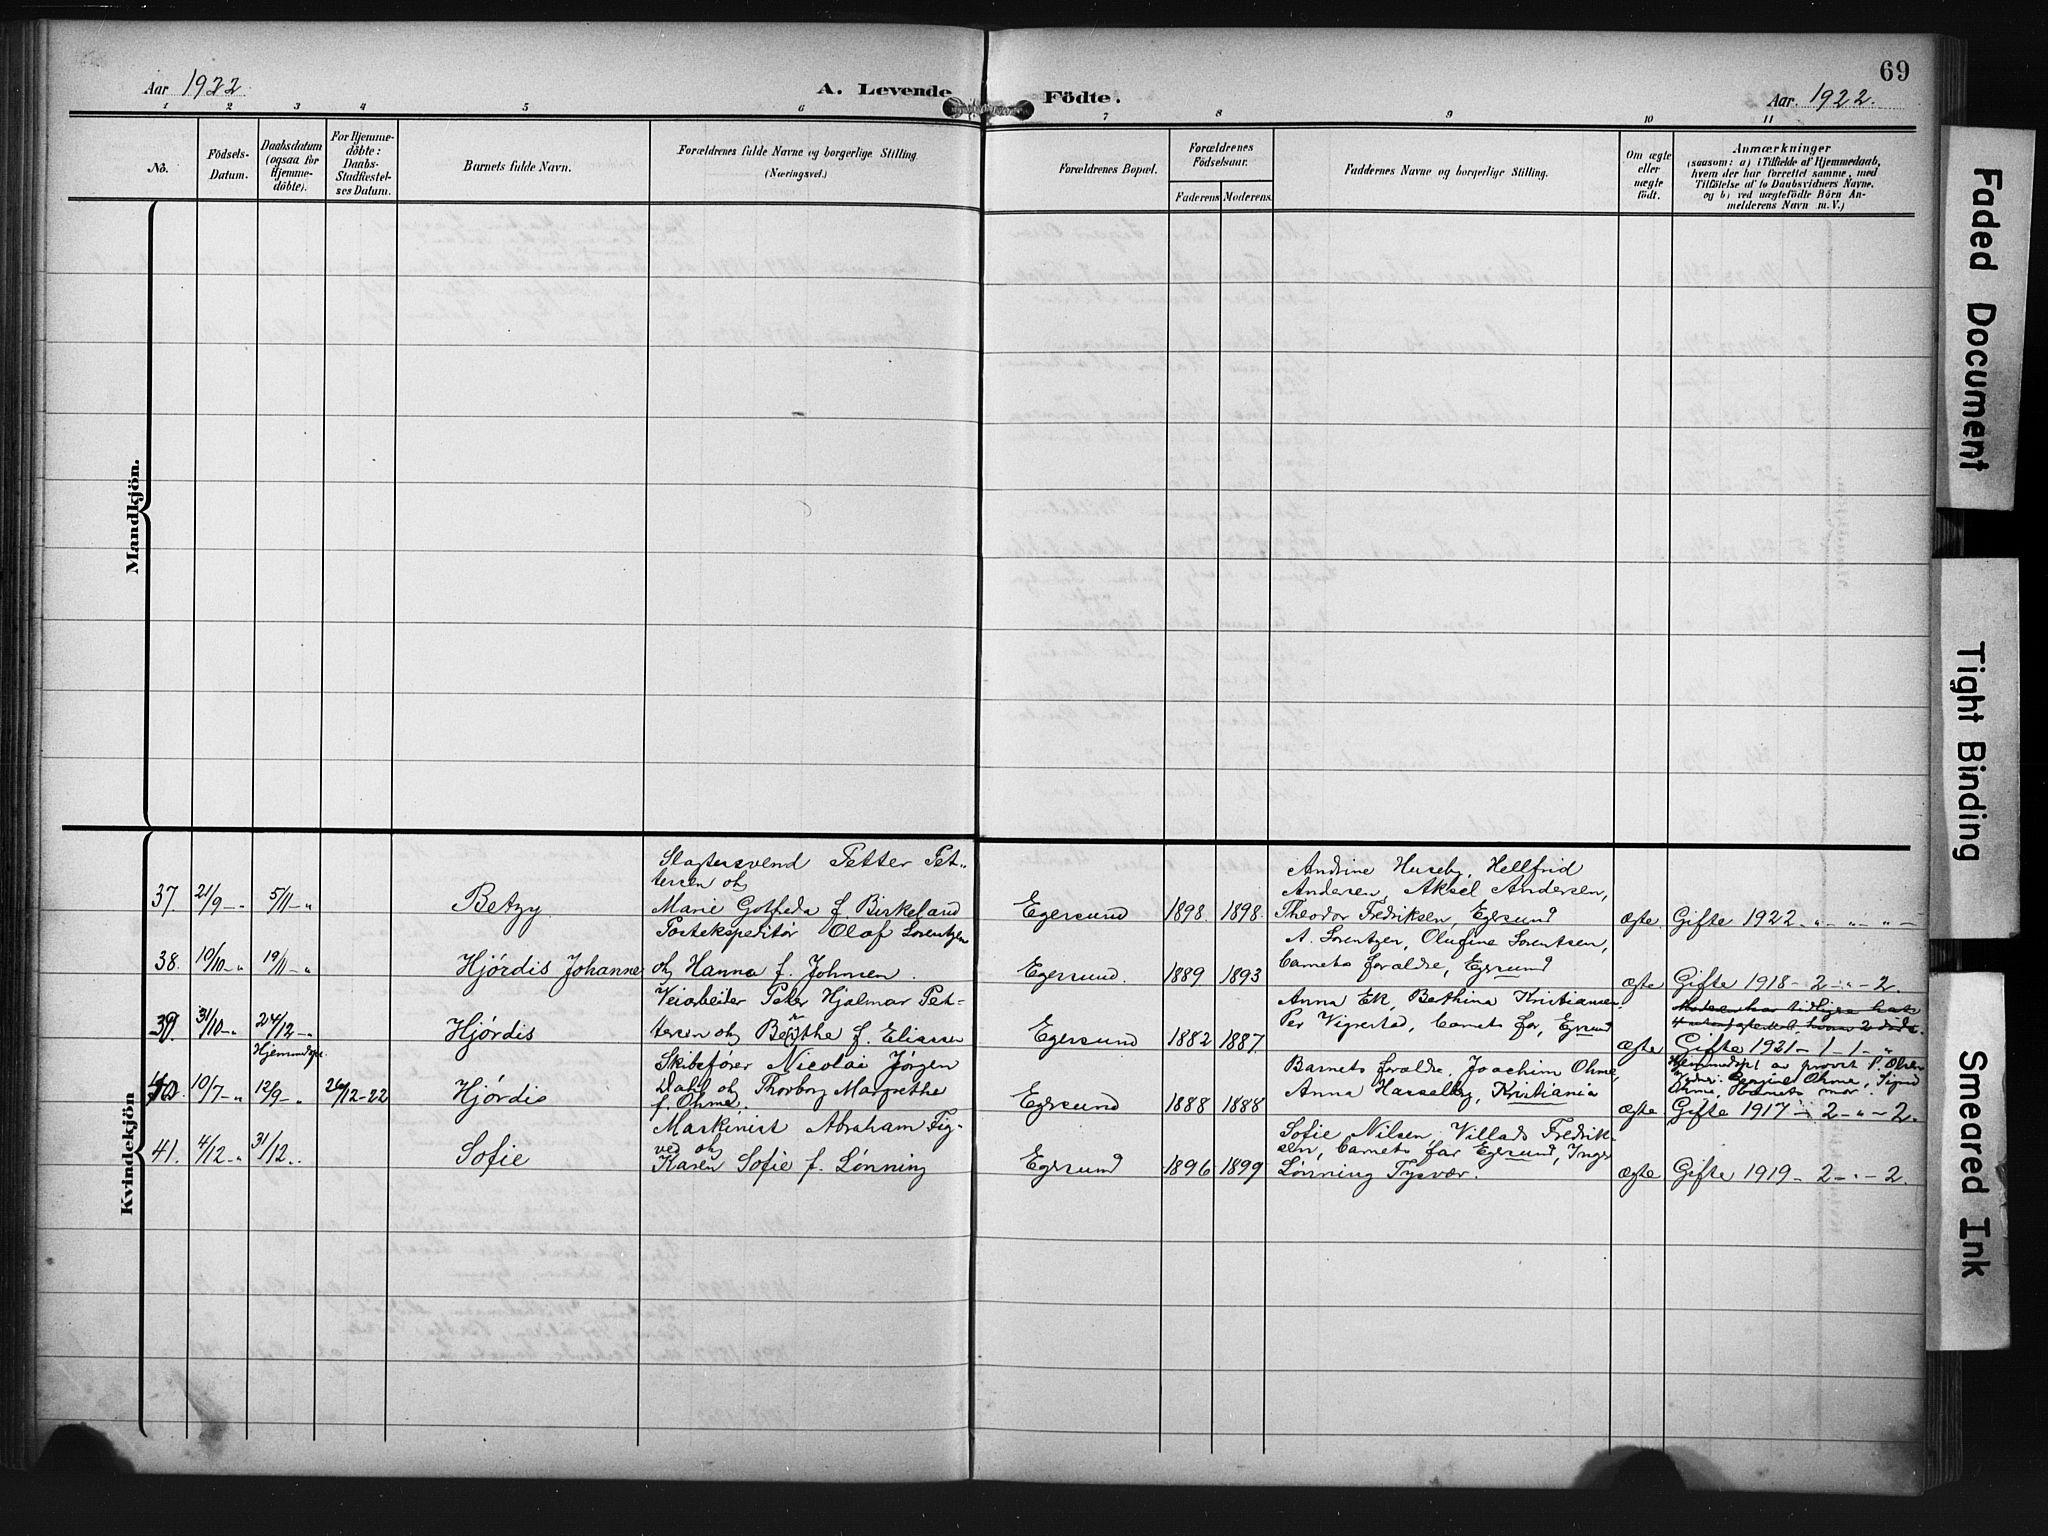 69
Aar 1922.
A. Levende Födte.
Aar. 1922.
1 2 3 4 5 6 7 8 9 10 11
No.
Födsels-Datum.
Daabsdatum (ogsaa for Hjemme-döbte).
For Hjemme-döbte: Daabs-Stadfæstel-ses Datum.
Barnets fulde Navn.
Forældrenes fulde Navne og borgerlige Stilling
(Næringsvei.)
Forældrenes Bopæl.
Forældrenes Födselsaar.
Faderens Moderens.
Faddernes Navne og borgerlige Stilling.
Om ægte eller uægte födt.
Anmærkninger
(saasom: a) i Tilfælde af Hjemmedaab,
hvem der har forrettet samme, med
Tilföielse af to Daabsvidners Navne,
og b) ved uægtefödte Börn An-
melderens Navn m. V.)
Mandkjön.
Kvindekjön
Slagtersvend Petter Pet-
tersen og
37. 21/9 - " 5/11 - " Betzy. Marie Gotfreda f. Birkeland
Andrine Huseby, Hellfrid
Andersen, Aksel Andersen,
Egersund 1898. 1898. Theodor Fredriksen, Egersund ægte. Gifte 1922 - " - " - " -
Postekspeditør Olaf Lorentzen
38. 10/10 - " 19/11 - " Hjørdis Johanne og Hanna f. Johnsen.
A. Lorentzen, Olufine Lorentsen,
Egersund 1889 1893 barnets forældre, Egersund ægte Gifte 1918 - 2 - " - 2.
Veiarbeider Peter Hjalmar Pet-
39. 31/10 - " 24/12 - " Hjørdis tersen og Berthe f. Eliassen
Anna Ek, Bethina Kristiansen,
Egersund 1882 1887. Per Vigrestad, barnets far, Egersund
ægte Gifte 1921 - 1 - 1 - "
Hjemmedøpt.
Skibsfører Nicolai Jørgen
40. 10/7 - " 12/9 - " 26/12-22 Hjørdis Dahl og Thorborg Margrethe
f. Ohme.
Barnets forældre, Joachim Ohme,
Egersund 1888 1888 Anna Hasselberg, Kristiania
Hjemmedøpt av provst P. Olsen
Ohme, Barnets mor.
ægte. Gifte 1917 - 2 - " - 2.
Maskinist Abraham Fig-
ved og
41. 4/12 - " 31/12 .. Sofie Karen Sofie f. Lønning
Sofie Nilsen, Villads Fredrik-
sen, barnets far Egersund, Inger
Egersund 1896 1899 Lønning Tysvær. ægte Gifte 1919 - 2 - " - 2.
Faded Document
Tight Binding
Smeared Ink